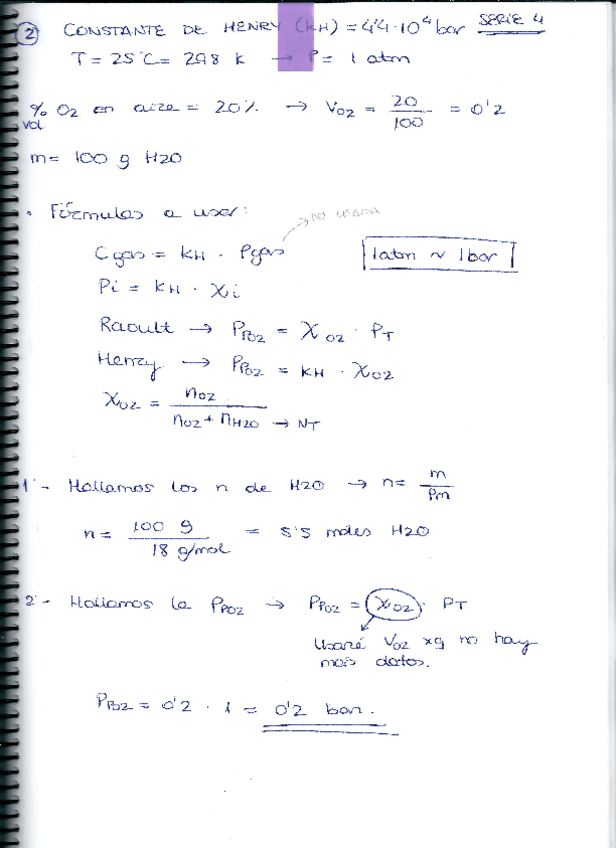 ② CONSTANTE DE HENRY (KH) = 4'4·10⁴ bar SERIE 4
T = 25°C = 298 k → P = 1 atm
% O2 en aire = 20% → VO2 = 20/100 = 0'2
vol
m = 100 g H2O
· Fórmulas a usar:
NO USADA
C gas = KH · Pgas
1atm ~ 1bar
Pi = KH · Xi
Raoult → PPO2 = XO2 · PT
Henry → PPO2 = KH · XO2
XO2 = nO2 / nO2 + nH2O → NT
1º- Hallamos los n de H2O → n = m/Pm
n = 100 g / 18 g/mol = 5'5 moles H2O
2º- Hallamos la PPO2 → PPO2 = XO2 · PT
Usaré VO2 xq no hay
más datos.
PPO2 = 0'2 · 1 = 0'2 bar.